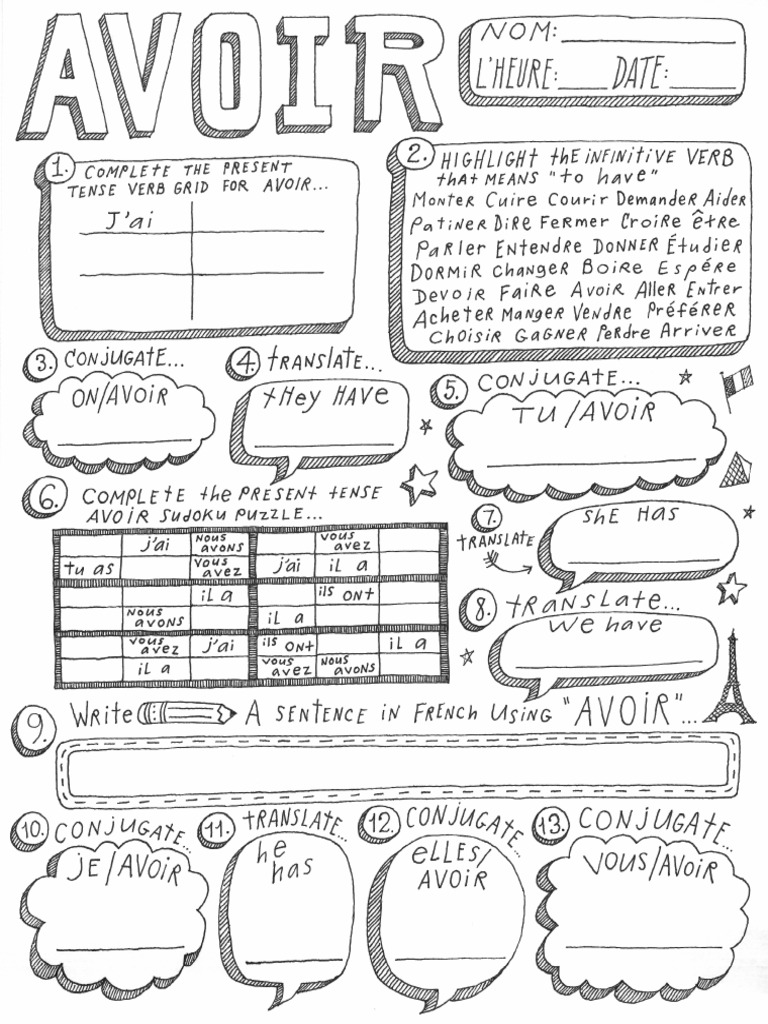 AVOIR
NOM:
L'HEURE: DATE:
1. COMPLETE THE PRESENT
TENSE VERB GRID FOR AVOIR...
J'ai
2. HIGHLIGHT the INFINITIVE VERB
that MEANS "to have"
Monter Cuire Courir Demander Aider
Patiner Dire Fermer Croire être
Parler Entendre Donner Étudier
Dormir Changer Boire Espére
Devoir Faire Avoir Aller Entrer
Acheter Manger Vendre Préférer
Choisir Gagner Perdre Arriver
3. CONJUGATE...
ON/AVOIR
4. TRANSLATE...
they HAVE
5. CONJUGATE...
TU/AVOIR
6. COMPLETE the PRESENT TENSE
AVOIR SUDOKU PUZZLE...
j'ai
nous
avons
vous
avez
tu as
vous
avez
j'ai
il a
il a
ils ont
nous
avons
il a
vous
avez
j'ai
ils ont
il a
il a
vous
avez
nous
avons
7.
TRANSLATE
SHE HAS
8. TRANSLATE...
We have
9. Write A SENTENCE IN FRENCH USING "AVOIR"...
10. CONJUGATE...
JE/AVOIR
11. TRANSLATE...
he
has
12. CONJUGATE...
ELLES/
AVOIR
13. CONJUGATE...
VOUS/AVOIR